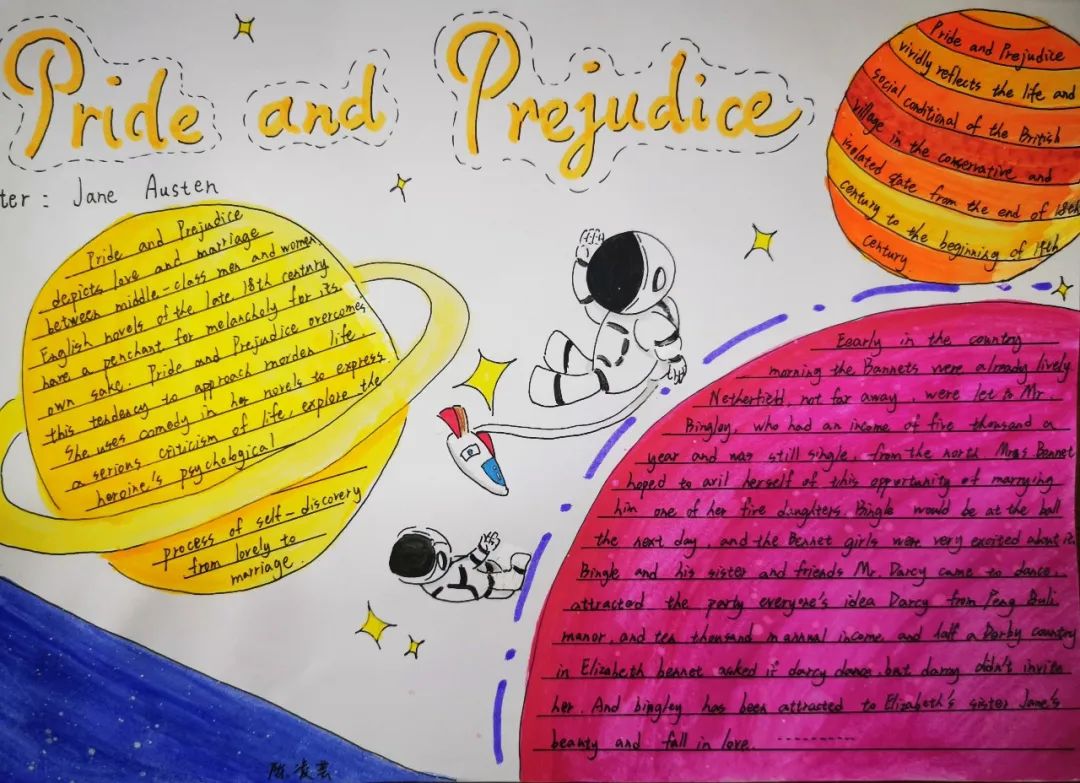 Pride and Prejudice
ter: Jane Austen
Pride and Prejudice
vividly reflects the life and
social conditional of the British
village in the conservative and
isolated state from the end of 18th
century to the beginning of 19th
century.
Pride and Prejudice
depicts love and marriage
between middle-class men and women,
English novels of the late 18th century
have a penchant for melancholy for its
own sake. Pride and Prejudice overcomes
this tendency to approach morden life.
She uses comedy in her novels to express
a serious criticism of life, explore the
heroine's psychological
process of self-discovery
from lovely to
marriage.
Eearly in the country
morning the Bannets were already lively
Netherfield, not far away, were let to Mr
Bingloy, who had an income of five thousand a
year and was still single, from the north Mrs Bennet
hoped to avil herself of this opportunity of marrying
him one of her five daughters. Bingle would be at the ball
the next day, and the Bennet girls were very excited about it.
Bingle and his sister and friends Mr. Darcy came to dance,
attracted the party everyone's idea Darcy from Peng Buli
manor, and ten thousand annual income and half a Darby country
in Elizabeth bennet asked if darcy dance, but darcy didn't invite
her. And bingley has been attracted to Elizabeth's sister Jane's
beauty and fall in love. ----------
陈凌芸